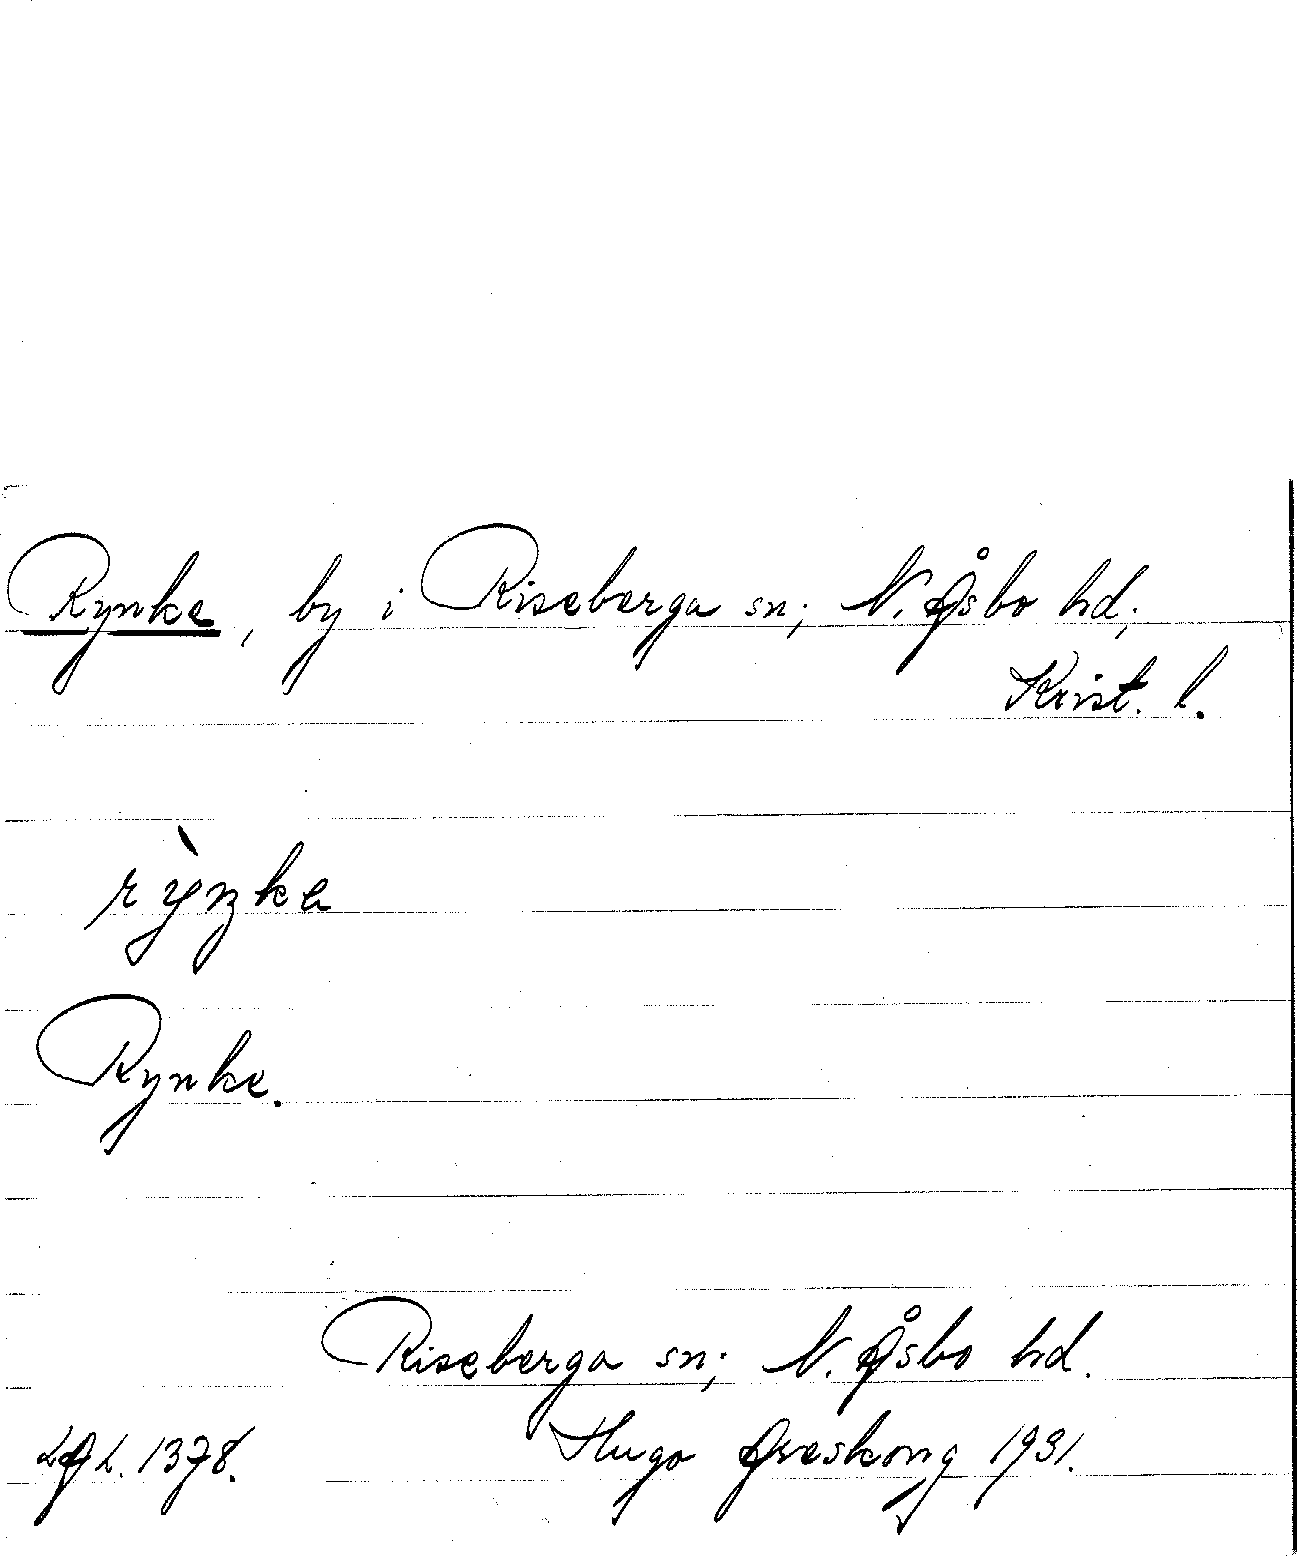 Rynke, by i Riseberga sn; N. Åsbo hd;
Krist. l.
rỳnke
Rynke.
Riseberga sn; N. Åsbo hd.
1378. Hugo Areskoug 1931.